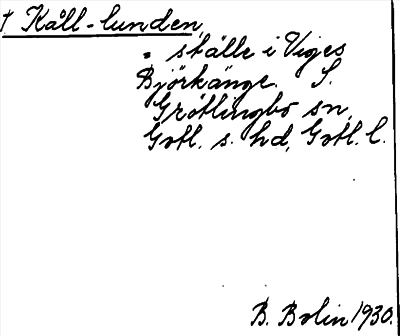 † Kåll-lunden,
= ställe i Viges
Björkänge. S.
Grötlingbo sn,
Gotl. s. hd, Gotl. l.
B. Bolin 1930.